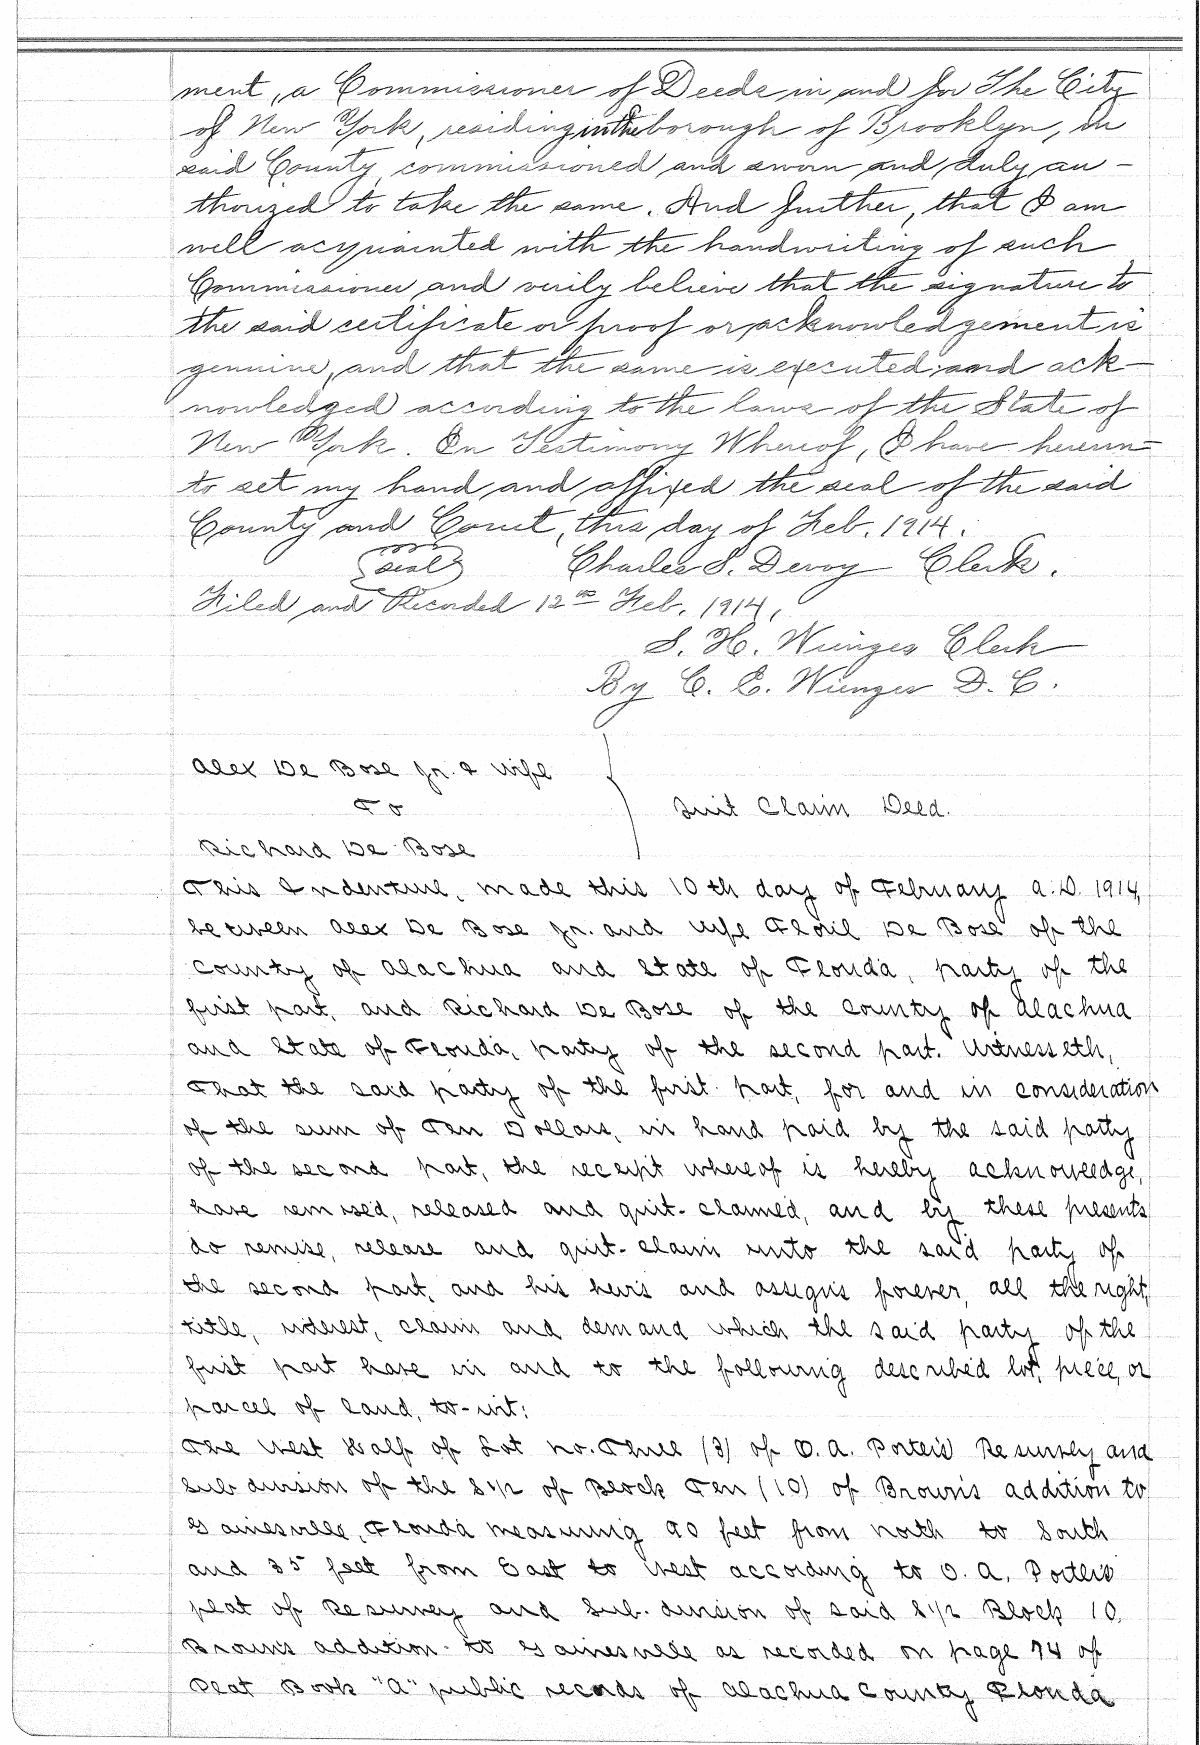 ment, a Commissioner of Deeds in and for The City
of New York, residing in the borough of Brooklyn, in
said County, commissioned and sworn and duly au-
thorized to take the same. And further, that I am
well acquainted with the handwriting of such
Commissioner and verily believe that the signature to
the said certificate or proof or acknowledgement is
genuine, and that the same is executed and ack-
nowledged according to the laws of the State of
New York. In Testimony Whereof, I have hereun=
to set my hand and affixed the seal of the said
County and Court, this day of Feb. 1914.
seal Charles S. Devoy Clerk.
Filed and Recorded 12th Feb. 1914,
S. H. Wienges Clerk
By C. E. Wienges D. C.
Alex De Bose Jr. & Wife
To
Quit Claim Deed.
Richard De Bose
This Indenture, made this 10th day of February A.D. 1914,
between Alex De Bose Jr. and wife De Bose of the
County of Alachua and State of Florida, party of the
first part, and Richard De Bose of the County of Alachua
and State of Florida, party of the second part. Witnesseth,
That the said party of the first part, for and in consideration
of the sum of Ten Dollars, in hand paid by the said party
of the second part, the receipt whereof is hereby acknowledge,
have remised, released and quit-claimed, and by these presents
do remise, release and quit-claim unto the said party of
the second part, and his heirs and assigns forever, all the right,
title, interest, claim and demand which the said party of the
first part have in and to the following described lot, piece, or
parcel of land, to-wit:
The West Half of Lot No. Three (3) of O. A. Porter's Resurvey and
Sub division of the S 1/2 of Block Ten (10) of Brown's addition to
Gainesville, Florida measuring 90 feet from North to South
and 35 feet from East to West according to O. A. Porter's
plat of Resurvey and Sub-division of said S 1/2 Block 10,
Brown's addition to Gainesville as recorded on page 74 of
Plat Book "A" public records of Alachua County Florida